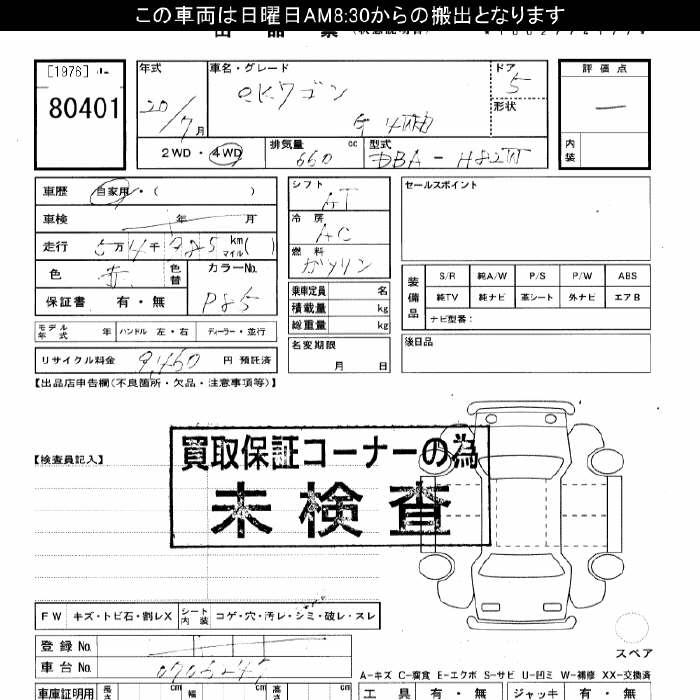 この車両は日曜日AM8:30からの搬出となります
[1976]
80401
年式
20/7月
車名・グレード
eKワゴン
G 4WD
ドア
5
形状
評価点
―
内装
2WD・4WD
排気量
660 cc
型式
DBA-H82W
車歴 自家用・( )
車検 年 月
走行 5万4千985 km マイル( )
色 赤 色替
カラーNo.
P85
保証書 有・無
モデル年式 年 ハンドル 左・右 ディーラー・並行
リサイクル料金 9,460 円 預託済
シフト
AT
冷房
AC
燃料
ガソリン
乗車定員 名
積載量 kg
総重量 kg
名変期限
月 日
セールスポイント
装備品
S/R 純A/W P/S P/W ABS
純TV 純ナビ 革シート 外ナビ エアB
ナビ型番:
後日品
【出品店申告欄(不良箇所・欠品・注意事項等)】
【検査員記入】
買取保証コーナーの為
未検査
FW キズ・トビ石・割レX シート内装 コゲ・穴・汚レ・シミ・破レ・スレ
スペア
登録No.
車台No.
A-キズ C-腐食 E-エクボ S-サビ U-凹ミ W-補修 XX-交換済
車庫証明用 長さ cm 幅 cm 高さ cm
工具 有・無 ジャッキ 有・無